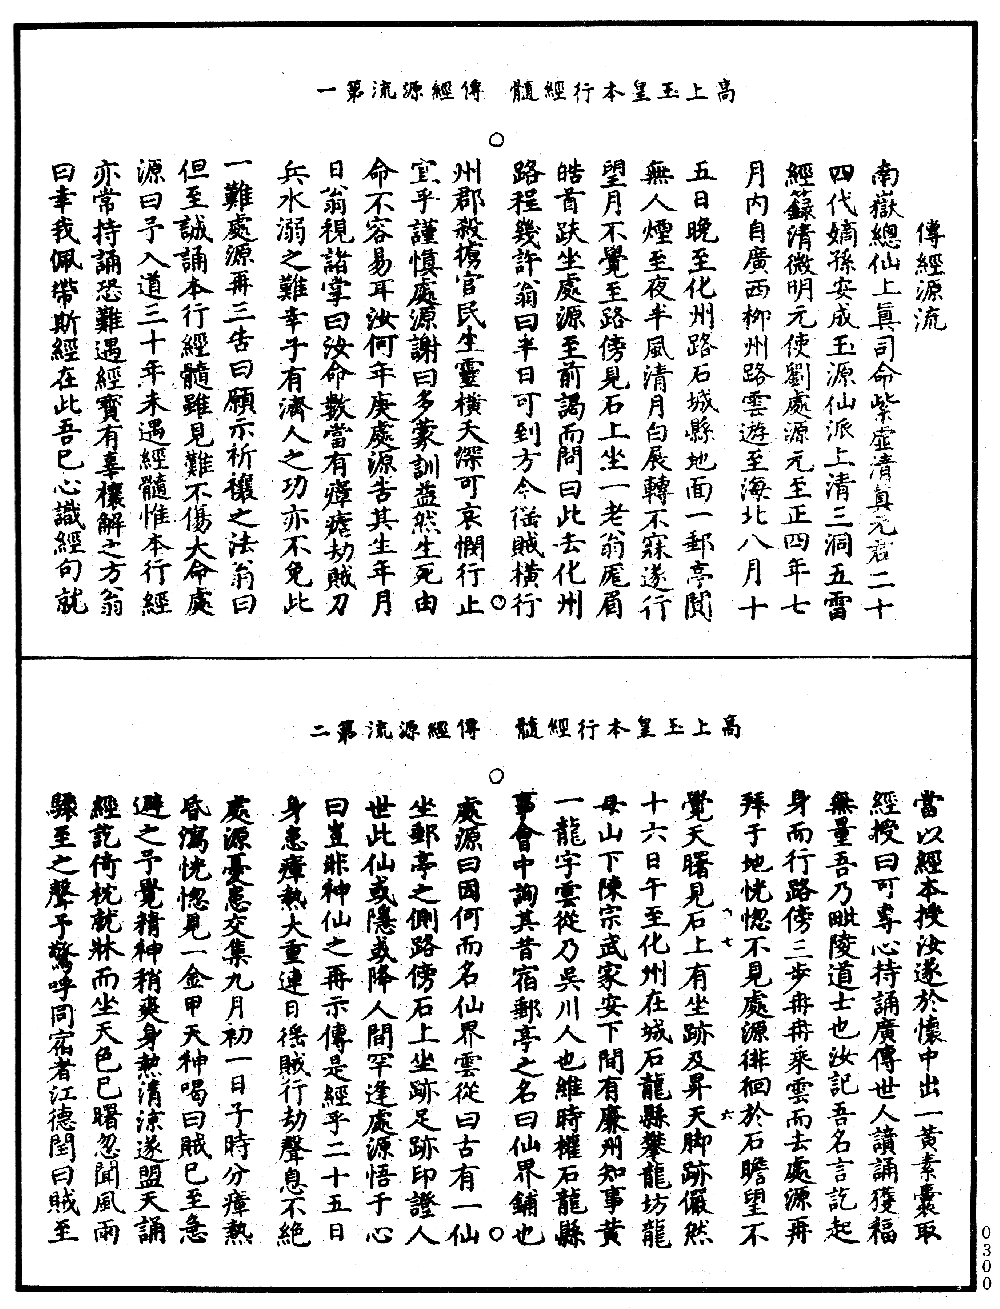 高上玉皇本行經髓　傳經源流第一
傳經源流
南嶽總仙上眞司命紫虛清眞元君二十
四代嫡孫安成玉源仙派上清三洞五雷
經籙清微明元使劉處源元至正四年七
月內自廣西柳州路雲遊至海北八月十
五日晚至化州路石城縣地面一郵亭閴
無人煙至夜半風清月白展轉不寐遂行
望月不覺至路傍見石上坐一老翁厖眉
皓首趺坐處源至前謁而問曰此去化州
路程幾許翁曰半日可到方今徭賊橫行
州郡殺擄官民生靈橫夭深可哀憫行止
宜乎謹慎處源謝曰多蒙訓益然生死由
命不容易耳汝何年庚處源告其生年月
日翁視諸掌曰汝命數當有瘴瘧劫賊刀
兵水溺之難幸子有濟人之功亦不免此
一難處源再三告曰願示祈禳之法翁曰
但至誠誦本行經髓雖見難不傷大命處
源曰予入道三十年未遇經髓惟本行經
亦常持誦恐難遇經寶有辜禳解之方翁
曰幸我佩帶斯經在此吾已心識經句就
高上玉皇本行經髓　傳經源流第二
當以經本授汝遂於懷中出一黃素囊取
經授曰可專心持誦廣傳世人讀誦獲福
無量吾乃毗陵道士也汝記吾名言訖起
身而行路傍三步冉冉乘雲而去處源再
拜于地恍惚不見處源徘徊於石瞻望不
覺天曙見石上有坐跡及昇天脚跡儼然
十六日午至化州在城石龍縣攀龍坊龍
母山下陳宗武家安下間有廉州知事黃
一龍字雲從乃吳川人也維時權石龍縣
事會中詢其昔宿郵亭之名曰仙界鋪也
處源曰因何而名仙界雲從曰古有一仙
坐郵亭之側路傍石上坐跡足跡印證人
世此仙或隱或降人間罕逢處源悟于心
曰豈非神仙之再示傳是經乎二十五日
身患瘴熱大重連日徭賊行劫聲息不絕
處源憂患交集九月初一日子時分瘴熱
昏瀉恍惚見一金甲天神喝曰賊已至急
避之予覺精神稍爽身熱清涼遂盟天誦
經訖倚枕就牀而坐天色已曙忽聞風雨
驟至之聲予驚呼同宿者江德閏曰賊至
七
六
0300